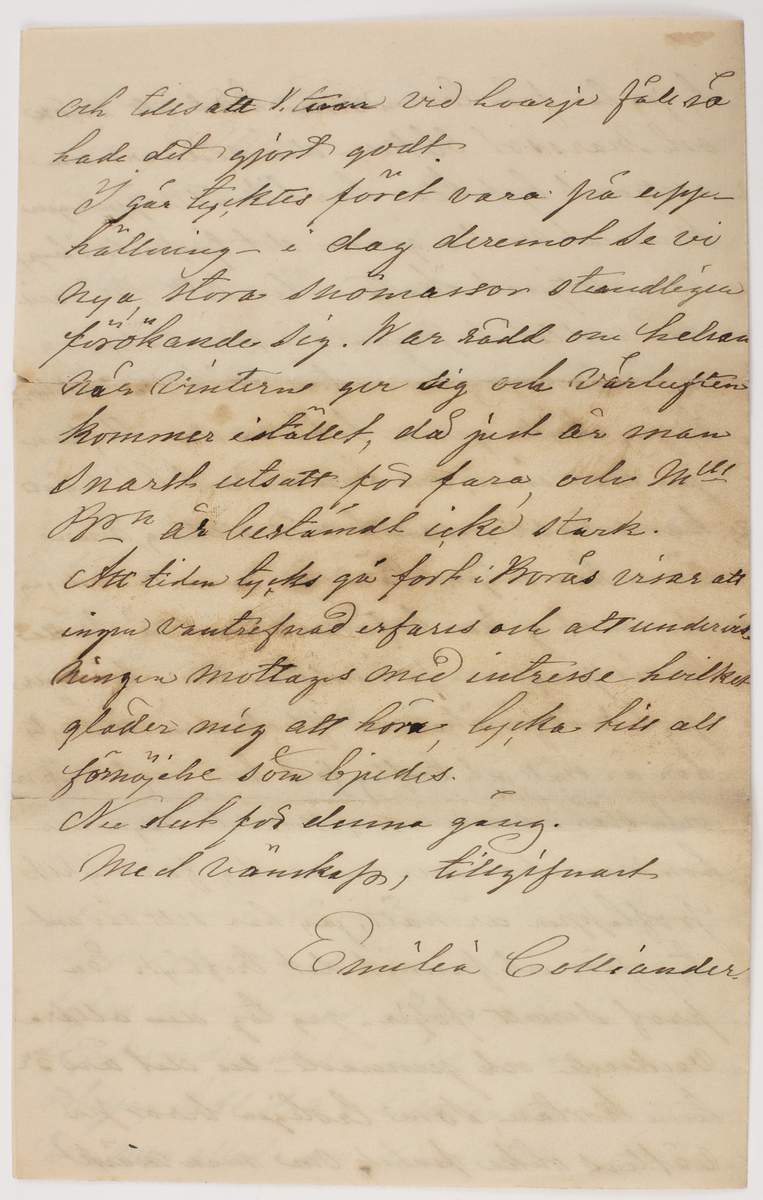 och tillsatt V. tum vid hvarje fåll så
hade det gjort godt.
I går tycktes föret vara på upp-
hällning – i dag deremot se vi
nya, stora snömassor ständligen
förökande sig. War rädd om helsan
när vintern ger sig och vårluften
kommer istället, då just är man
snarst utsatt för fara, och Mll
är bestämdt icke stark.
Att tiden tycks gå fort i Borås visar att
ingen vantrefnad erfares och att undervis
ningen mottages med intresse hvilket
gläder mig att höra, lycka till all
förnöjelse som bjudes.
Nu slut för denna gång.
Med vänskap, tillgifnast
Emilia Colliander.